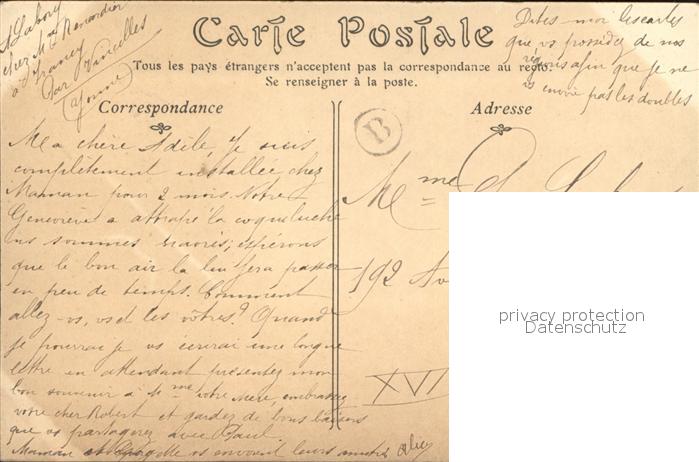 A Labory
chez Me Renardier
à Irancy
Par Vincelles
(Yonne)
Carte Postale
Tous les pays étrangers n'acceptent pas la correspondance au recto.
Se renseigner à la poste.
Dites-moi les cartes
que vs possédez de nos
régions afin que je ne
vs envoie pas les doubles
Correspondance
Ma chère Adèle, Je suis
complètement installée chez
Maman pour 2 mois. Notre
Geneviève a attrapé la coqueluche
ns sommes navrés; espérons
que le bon air la lui fera passer
en peu de temps. Comment
allez-vs, vs et les vôtres? Quand
je pourrai je vs écrirai une longue
lettre en attendant présentez mon
bon souvenir à Mme votre Mère, embrassez
votre cher Robert et gardez de bons baisers
que vs partagerez avec Paul.
Maman et vs envoient leurs amitiés
Adresse
B
Mme
192 Av
XVI
privacy protection
Datenschutz